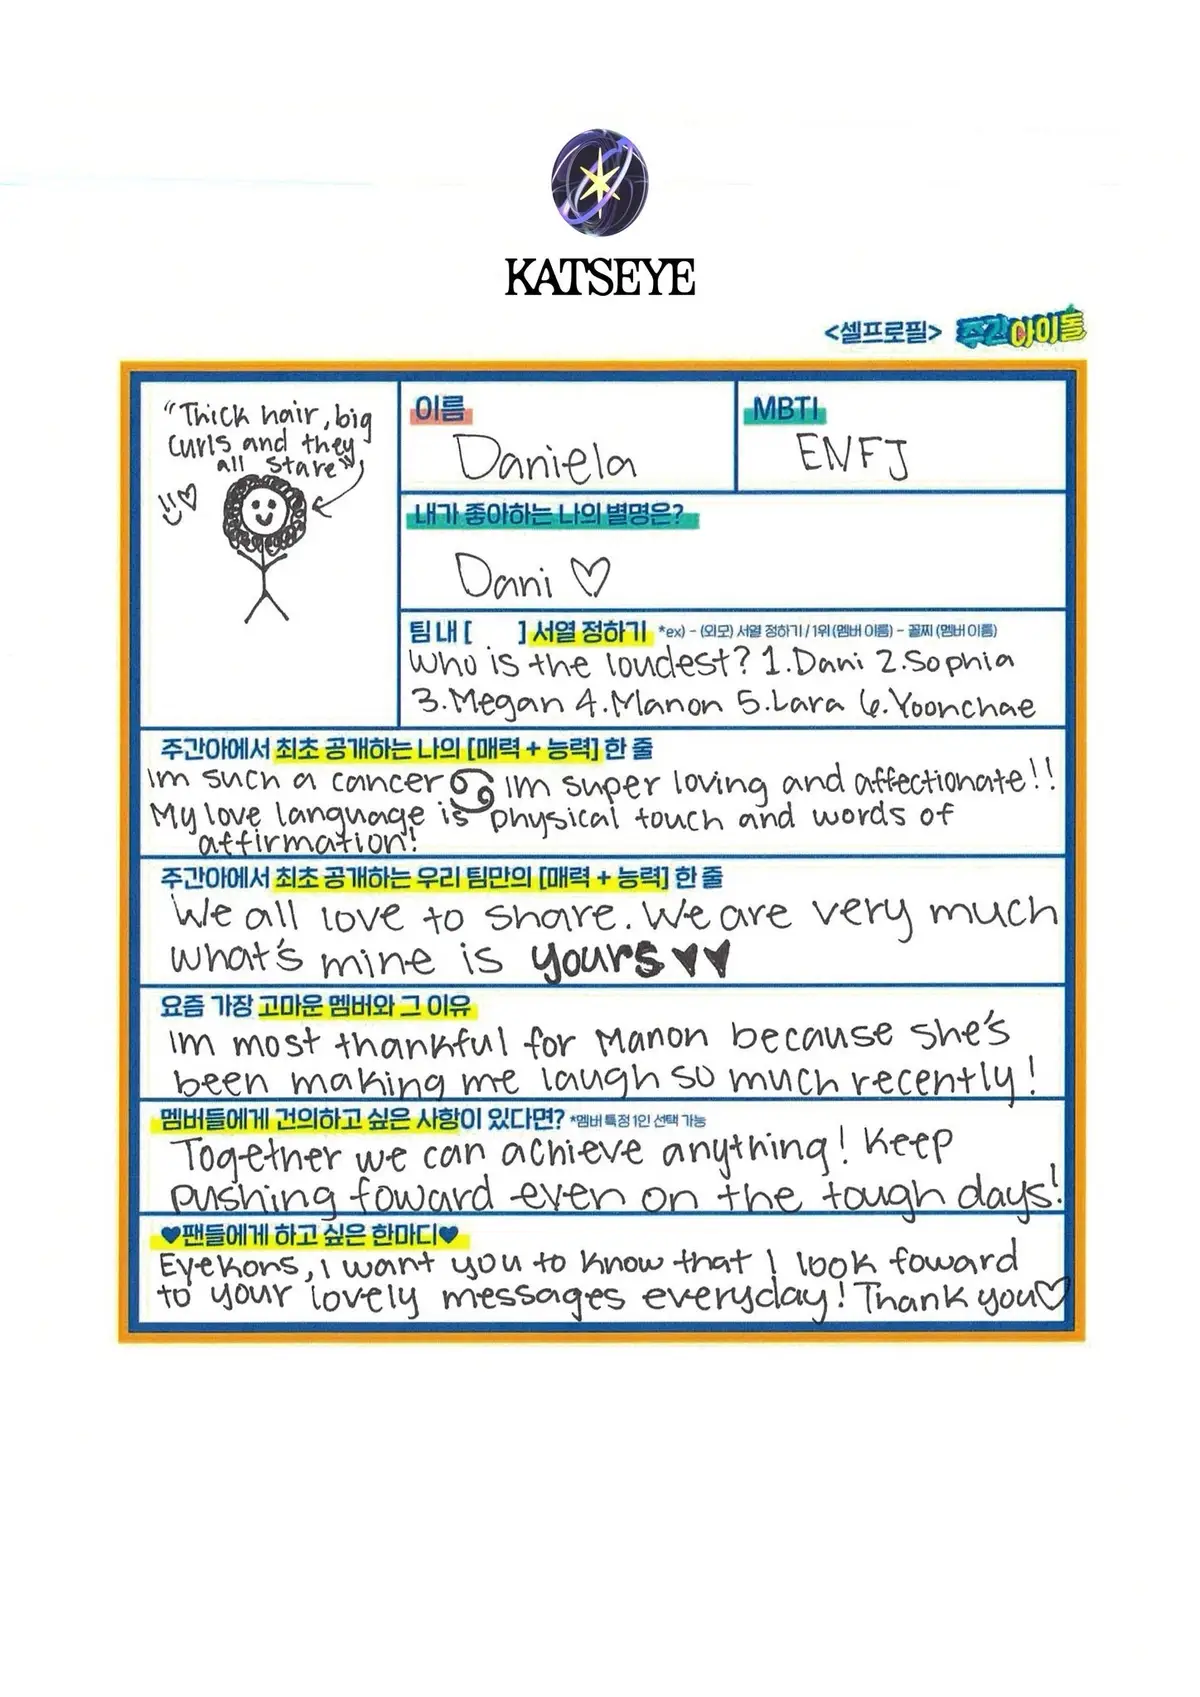 KATSEYE
<셀프로필> 주간아이돌
"Thick hair, big
curls and they
all stare"
이름
Daniela
MBTI
ENFJ
내가 좋아하는 나의 별명은?
Dani ♡
팀 내 [ ] 서열 정하기 *ex) - (외모) 서열 정하기 / 1위 (멤버 이름) - 꼴찌 (멤버 이름)
Who is the loudest? 1.Dani 2.Sophia
3.Megan 4.Manon 5.Lara 6.Yoonchae
주간아에서 최초 공개하는 나의 [매력 + 능력] 한 줄
Im such a cancer ♋ Im super loving and affectionate!!
My love language is physical touch and words of
affirmation!
주간아에서 최초 공개하는 우리 팀만의 [매력 + 능력] 한 줄
We all love to share. We are very much
what's mine is yours ♥♥
요즘 가장 고마운 멤버와 그 이유
Im most thankful for Manon because she's
been making me laugh so much recently!
멤버들에게 건의하고 싶은 사항이 있다면? *멤버 특정 1인 선택 가능
Together we can achieve anything! Keep
pushing foward even on the tough days!
♥팬들에게 하고 싶은 한마디♥
Eyekons, I want you to know that I look foward
to your lovely messages everyday! Thank you♡